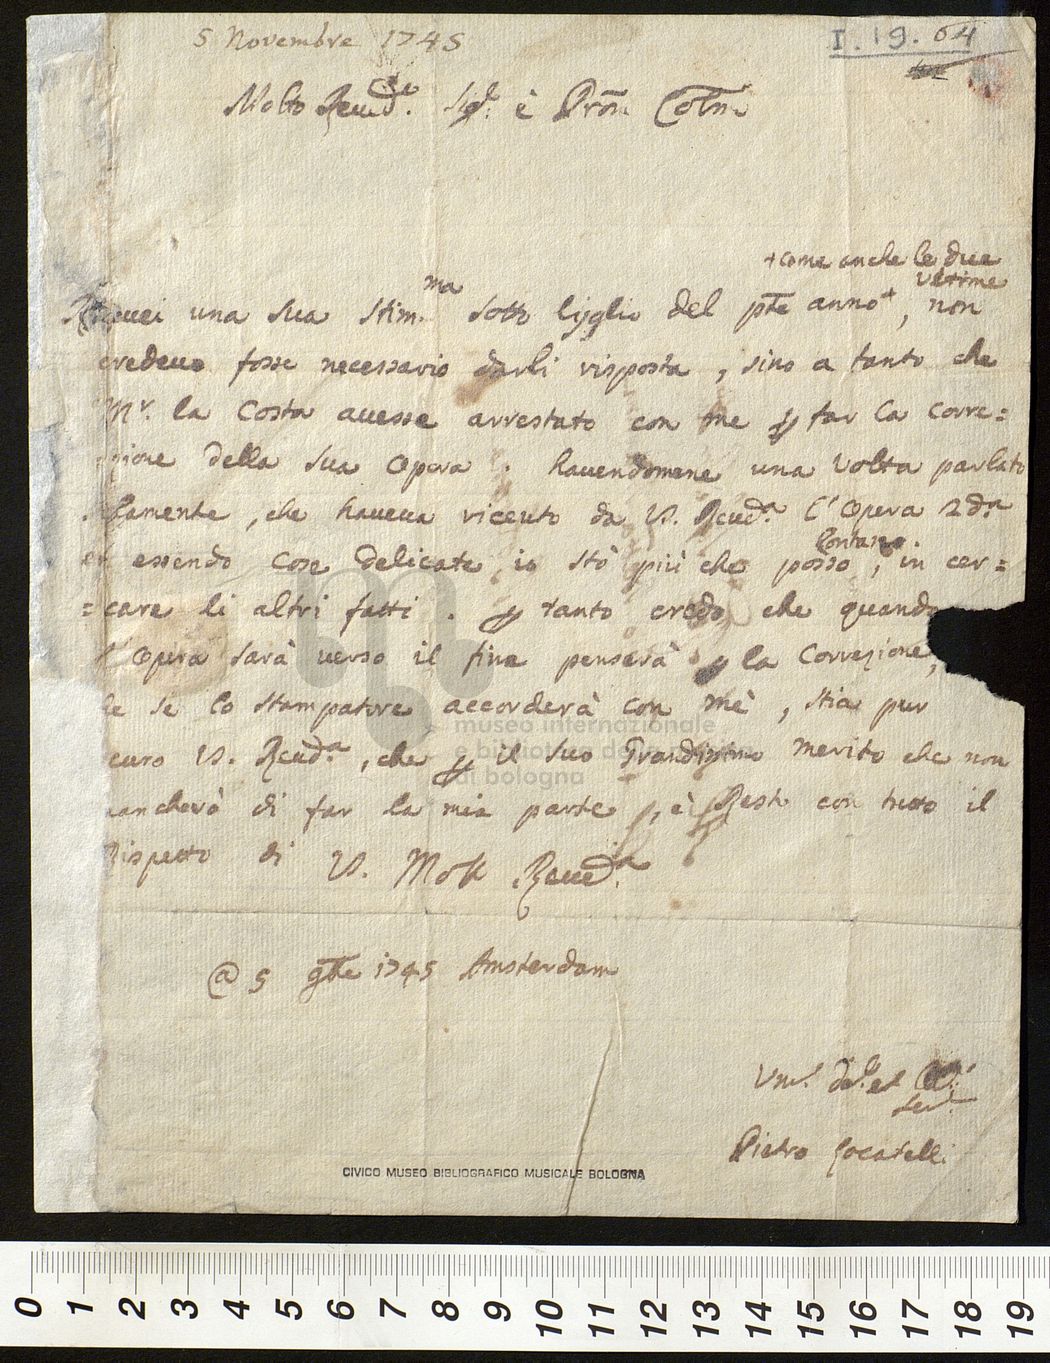 5 Novembre 1745
I. 19. 64
Molto Reud.ª Sig.r è Pròn Colm̃o
+ come anche le due
ultime
Riceuei una sua stim.ma sotto luglio del pñte anno+, non
credeuo fosse necessario darli risposta, sino a tanto che
Mr. la Costa auesse arrestato con me far la corre=
zione della sua Opera. hauendomene una volta parlato
, che haueua riceuto da V. Reud.ª l'Opera 2dª
et essendo cose delicate, io stò più che posso lontano, in cer=
=care li altri fatti. tanto credo che quando
l'Opera sarà verso il fine penserà la Correzione,
e se lo stampatore accorderà con mè, stia pur
curo V. Reud.ª, che il suo Grandissimo merito che non
mancherò di far la mia parte, è Resto con tutto il
Rispetto di V. Molt Reud.ª
@ 5 9bre 1745 Amsterdam
Um.o
Ser.
Pietro Locatelli
CIVICO MUSEO BIBLIOGRAFICO MUSICALE BOLOGNA
museo internazionale
e biblioteca della musica
di bologna
0 1 2 3 4 5 6 7 8 9 10 11 12 13 14 15 16 17 18 19